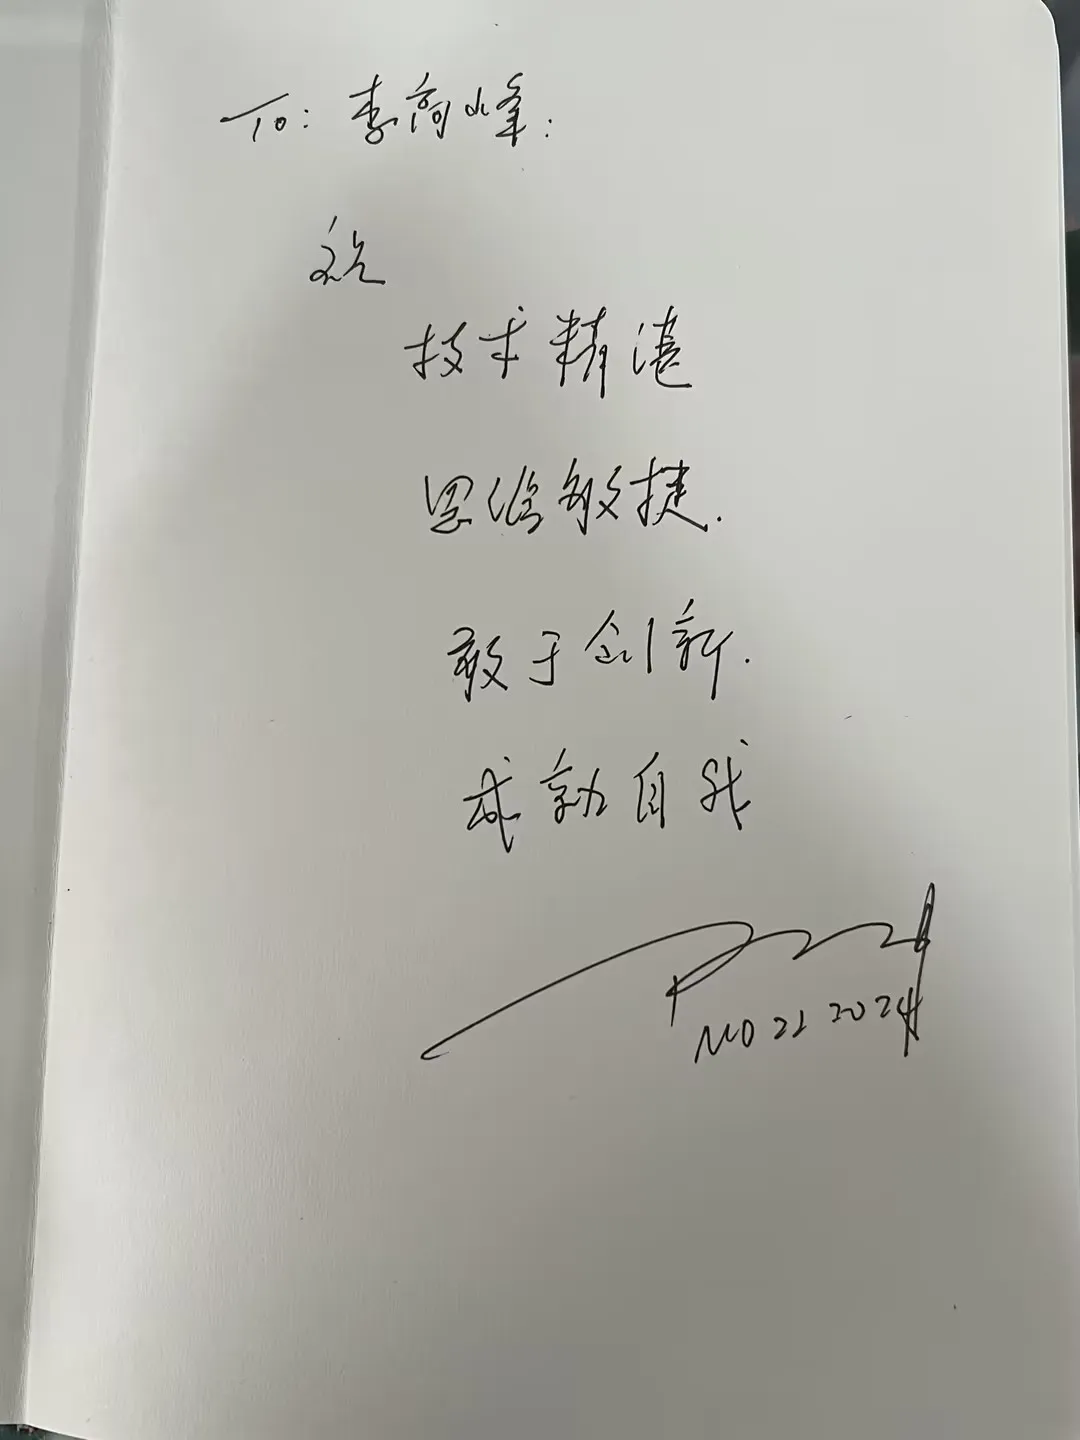 To: 李高峰:
祝
技术精湛
思维敏捷.
敢于创新.
成就自我
22 2024